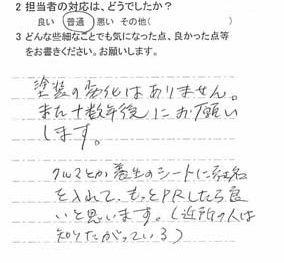 2 担当者の対応は、どうでしたか?
良い 普通 悪い その他( )
3 どんな些細なことでも気になった点、良かった点等
をお書きください。お願いします。
塗装の劣化はありません。
また十数年後にお願い
します。
クルマとか養生のシートに社名
を入れて、もっとPRしたら良
いと思います。(近所の人は
知りたがっている)